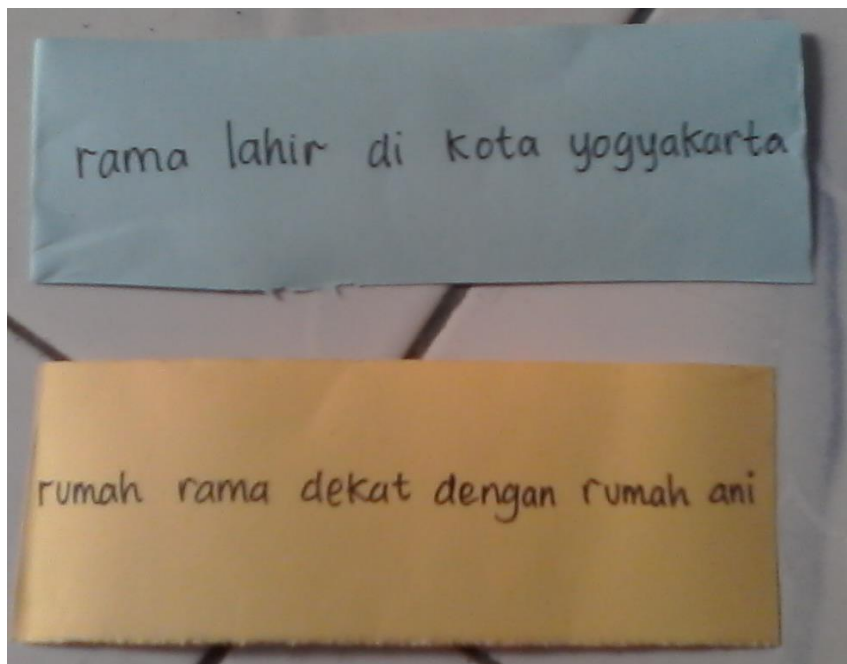 rama lahir di kota yogyakarta
rumah rama dekat dengan rumah ani